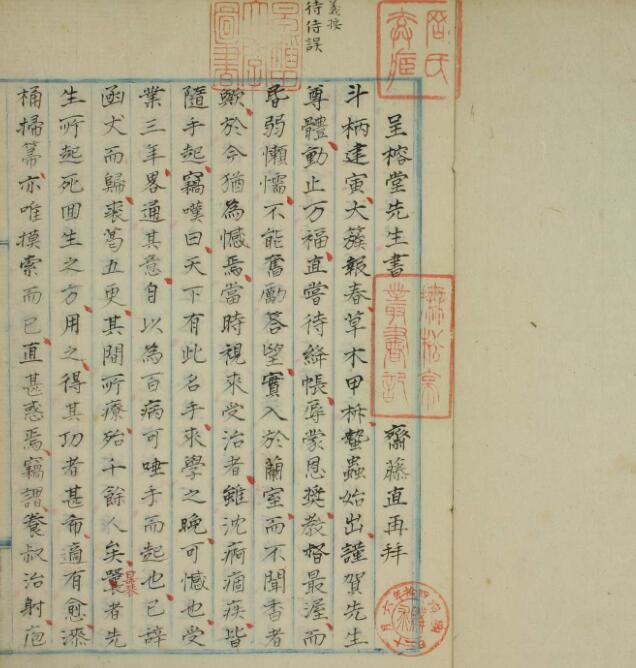 義按
待侍誤
呈榕堂先生書 齋藤直再拜
斗柄建寅大簇報春草木甲柝蟄蟲始出謹賀先生
尊體動止万福直嘗待絳帳辱蒙恩奬教督最渥而
孱弱懶懦不能奮勵答望實入於蘭室而不聞香者
歟於今猶為憾焉當時視來受治者雖沈痾痼疾皆
隨手起竊嘆曰天下有此名手來學之晚可憾也受
業三年畧通其意自以為百病可唾手而起也已辞
函丈而歸裘葛五更其間所療殆千餘人矣曩者先
曩
生所起死回生之方用之得其功者甚希適有愈添
桶掃籌亦唯摸索而已直甚惑焉竊謂養叔治射庖